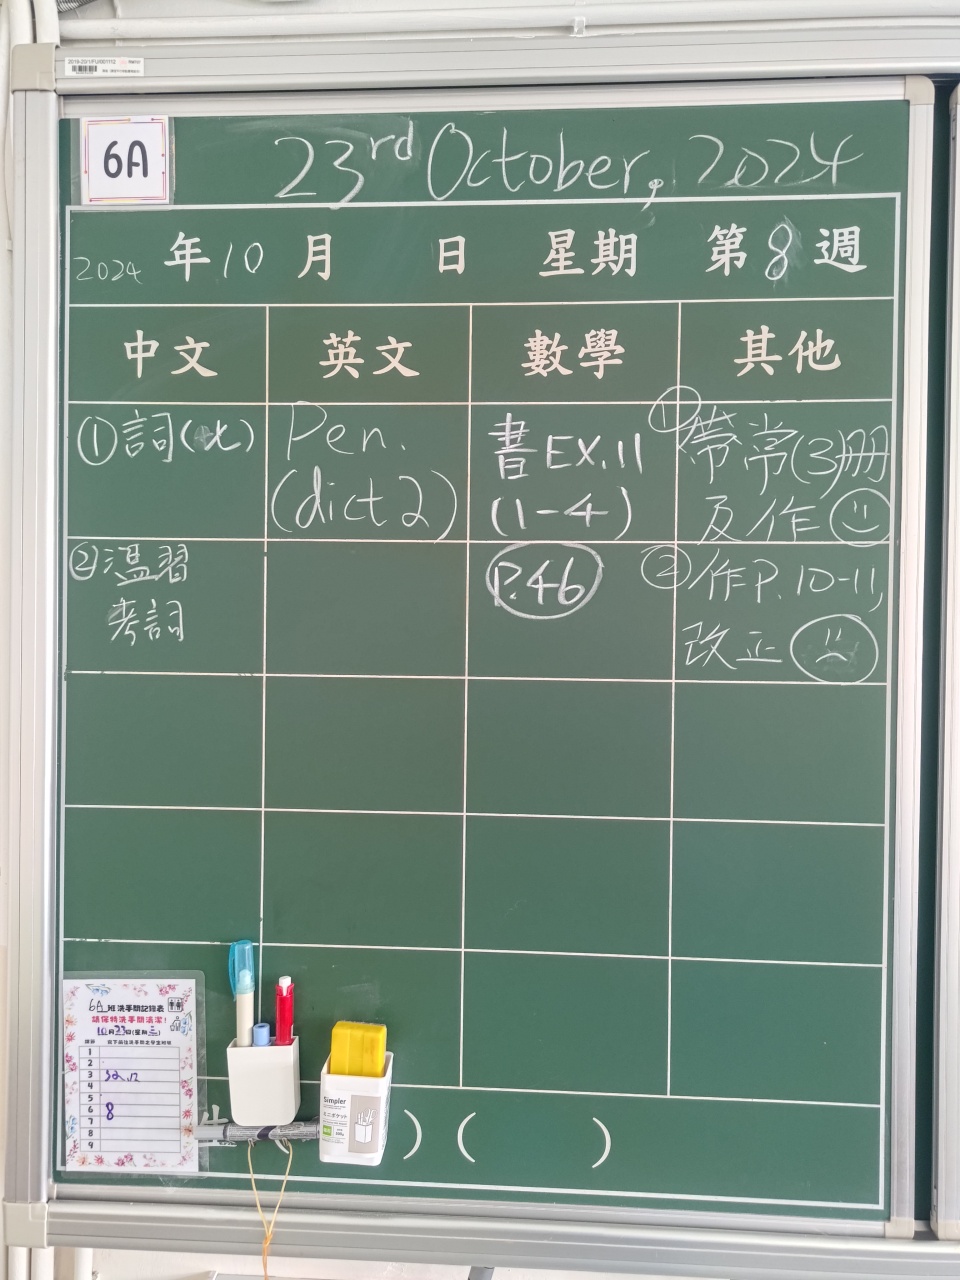 6A
23rd October, 2024
2024 年 10 月 日 星期 第 8 週
中文 英文 數學 其他
①詞(七)
②溫習
考詞
Pen.
(dict 2)
書EX.11
(1-4)
P.46
①帶常(3)冊
及作
②作P.10-11,
改正
6A 班洗手間記錄表
請保持洗手間清潔!
10月23日(星期三)
1
2
3
4
5
6 8
7
8
9
Simpler
ミニポケット
) ( )